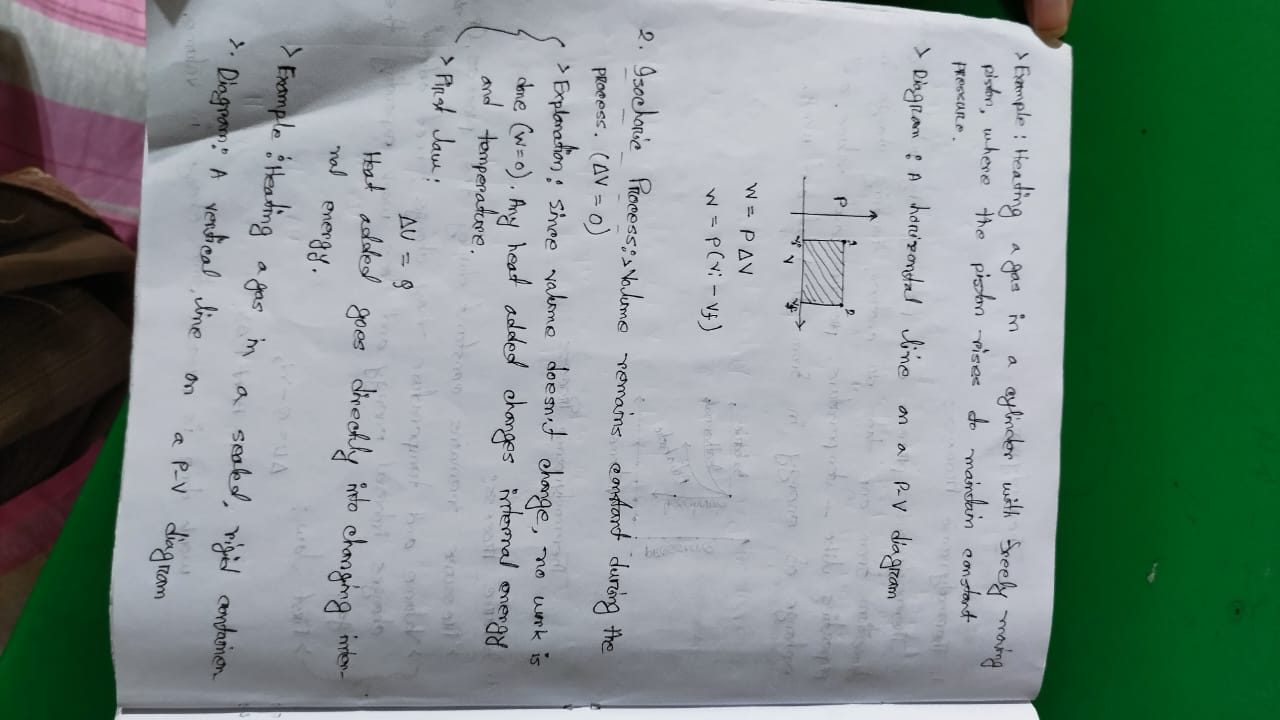 > Example : Heating a gas in a cylinder with freely moving
piston, where the piston rises to maintain constant
pressure.
> Diagram : A horizontal line on a P-V diagram
P
1 2
Vi V Vf
W = P ΔV
W = P(Vi - Vf)
2. Isochoric Process:> Volume remains constant during the
process. (ΔV = 0)
> Explanation: Since volume doesn't change, no work is
done (W=0). Any heat added changes internal energy
and temperature.
> First law:
ΔU = Q
Heat added goes directly into changing inter-
nal energy.
> Example : Heating a gas in a sealed, rigid container
>. Diagram: A vertical line on a P-V diagram